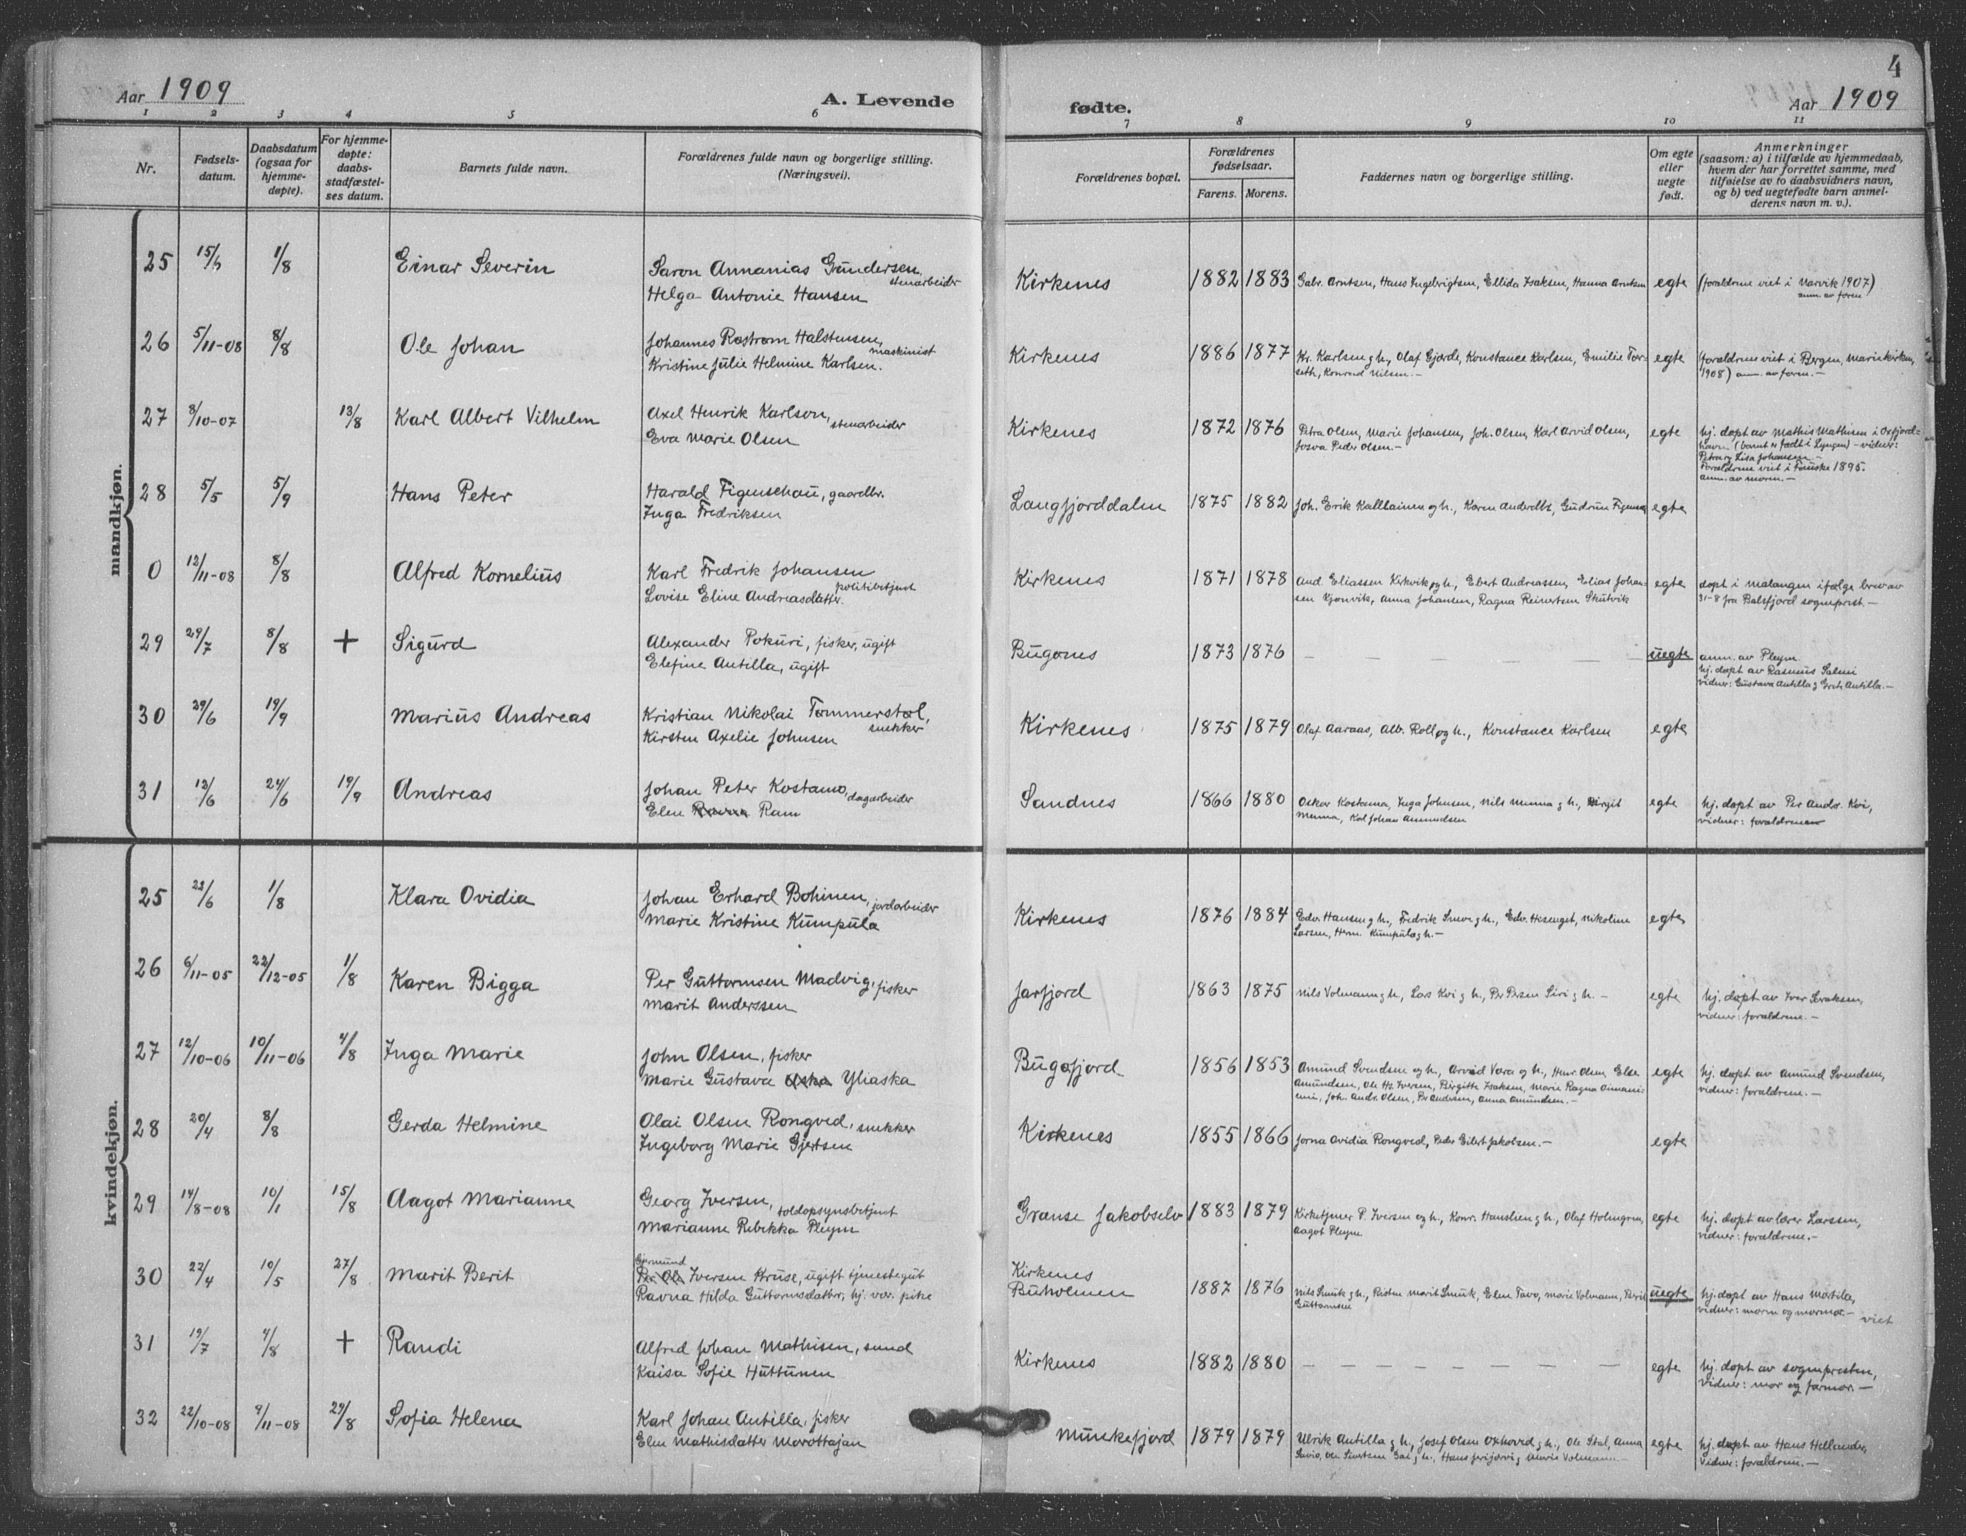 Aar 1909
A. Levende
fødte.
4
Aar 1909
1 2 3 4 5 6 7 8 9 10 11
Nr.
Fødsels-
datum.
Daabsdatum
(ogsaa for
hjemme-
døpte).
For hjemme-
døpte:
daabs-
stadfæstel-
ses datum.
Barnets fulde navn.
Forældrenes fulde navn og borgerlige stilling.
(Næringsvei).
Forældrenes bopæl.
Forældrenes
fødselsaar.
Farens. Morens.
Faddernes navn og borgerlige stilling.
Om egte
eller
uegte
født.
Anmerkninger
(saasom: a) i tilfælde av hjemmedaab,
hvem der har forrettet samme, med
tilføielse av to daabsvidners navn,
og b) ved uegtefødte barn anmel-
derens navn m. v.).
mandkjøn.
25 1/8 Einar Severin
Saron Annanias Gundersen,
stenarbeider
Helga Antonie Hansen
Kirkenes 1882 1883 Gabr. Arntsen, Hans Ingebrigtsen, Ellida Isaksen, Hanna Arntsen egte (forældrene viet i Narvik 1907)
anm. av faren
26 5/11-08 8/8 Ole Johan
Johannes Rostrøm Halstensen,
maskinist
Kristine Julie Helmine Karlsen.
Kirkenes 1886 1877 Kr. Karlsen g h., Olaf Gjerde, Konstance Karlsen, Emilie Tor-
seth, Konrad Nilsen. — egte (forældrene viet i Bergen, Mariekirken,
1908) anm. av faren. —
27 8/10-07 13/8 Karl Albert Vilhelm
Axel Henrik Karlson,
stenarbeider
Eva Marie Olsen
Kirkenes 1872 1876 Petra Olsen, Marie Johansen, Joh. Olsen, Karl Arvid Olsen,
Josva Peder Olsen. — egte hj. døpt av Mathis Mathisen i Oxfjord-
havn (barnet er født i Lyngen) - vidner:
Petra og Lisa Johansen —
Forældrene viet i Fauske 1895.
anm. av moren. —
28 5/5 5/9 Hans Peter
Harald Figenschau, gaardbr.
Inga Fredriksen
Langfjorddalen 1875 1882 Joh. Erik Kalllainen og h., Karen Gudrun egte
0 12/11-08 8/8 Alfred Kornelius
Karl Fredrik Johansen
politibetjent
Lovise Eline Andreasdatter.
Kirkenes 1871 1878 And. Eliassen Kirkvik og h., Ebert Andreassen, Elias Johan-
sen Anna Johansen, Ragna Reinertsen Skutvik egte døpt i Malangen ifølge brev av
31-8 fra Balsfjord sogneprest. —
29 29/7 8/8 + Sigurd
Alexander Pokuri, fisker, ugift
Elefine Antilla, ugift
Bugønes 1873 1876 — — — — — — — uegte anm. av Pleym
hj. døpt av Rasmus Salmi
vidner: Gustava Antilla og Antilla. —
30 29/6 19/9 Marius Andreas
Kristian Nikolai Tømmerstøl,
snekker
Kirsten Axelie Johnsen
Kirkenes 1875 1879 Olaf Aaraas, Alb. Roll og h., Konstance Karlsen egte
31 24/6 19/9 Andreas
Johan Peter Kostamo,
dagarbeider
Elen Ravna Ram
Sandnes 1866 1880 Oskar Kostamo, Inga Johnsen, Nils Menna g h., Birgit
Menna, Karl Johan Amundsen egte hj. døpt av Per Andr. Kvi,
vidner: forældrene
kvindekjøn.
25 1/8 Klara Ovidia
Johan Erhard Bohinen,
jordarbeider
Marie Kristine Kumpula
Kirkenes 1876 1884 Edv. Hansen g h., Fredrik g h., Edv. Nikoline
Larsen, Herm. Kumpula g h. — egte
26 6/11-05 22/12-05 1/8 Karen Bigga
Per Guttormsen Madvig, fisker
Marit Anderssen
Jarfjord 1863 1875 Nils Volmann g h., Lars Kvi g h., Per Persen Siri g h. — egte hj. døpt av Iver Isaksen,
vidner: forældrene. —
27 12/10-06 10/11-06 4/8 Inga Marie
John Olsen, fisker
Marie Gustava Yliaska
Bugøfjord 1856 1853 Amund Svendsen og h., Arvid Vara og h., Henr. Olsen, Else
Amundsen, Ole Hs. Iversen, Birgitte Isaksen, Marie Ragna
Joh. Andr. Olsen, Anna Amundsen. — egte hj. døpt av Amund Svendsen,
vidner: forældrene. —
28 20/4 8/8 Gerda Helmine
Olai Olsen Rongved, snekker
Ingeborg Marie Gjertsen
Kirkenes 1855 1866 Jorna Ovidia Rongved, Peder Eilert Jakobsen. — egte
29 14/8-08 10/1 15/8 Aagot Marianne
Georg Iversen,
toldopsynsbetjent
Marianne Rebekka Pleym
Grænse Jakobselv 1883 1879 Kirketjener P. Iversen og h., Konr. Hanslien g h., Olaf Holmgren,
Aagot Pleym egte hj. døpt av lærer Larssen,
vidner: forældrene. —
30 22/4 10/5 27/8 Marit Berit
Gjermund
Iversen Kruse, ugift tjenestegut
Ravna Hilda Guttormsdatter, hj. vær. pike
Kirkenes
Buholmen 1887 1876 Nils Smuk g h., Marit Smuk, Elen Tavo, Marie Volmann, Berit
Guttormsen uegte hj. døpt av Hans
vidner: moren og mormor. —
viet
31 19/7 4/8 + Randi
Alfred Johan Mathisen, smed
Kaisa Sofie Huttunen
Kirkenes 1882 1880 — — — — — — — egte hj. døpt av sognepresten,
vidner: mor og farmor. —
32 22/10-08 9/11-08 29/8 Sofia Helena
Karl Johan Antilla, fisker
Elen Mathisdatter Morottajan
Munkefjord 1879 1879 Ulrik Antilla g h., Josef Olsen Oxhovid g h., Ole Stal, Anna
Savio, g h., Hans og Marie Volmann. — egte hj. døpt av Hans Hellander,
vidner: forældrene. —